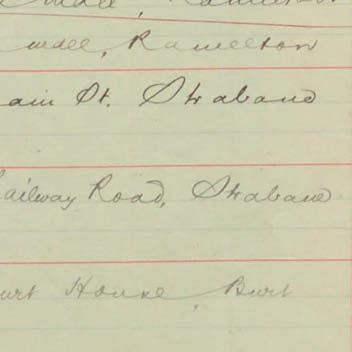 mall, Ramelton
ain St. Strabane
ailway Road, Strabane
urt House, Burt